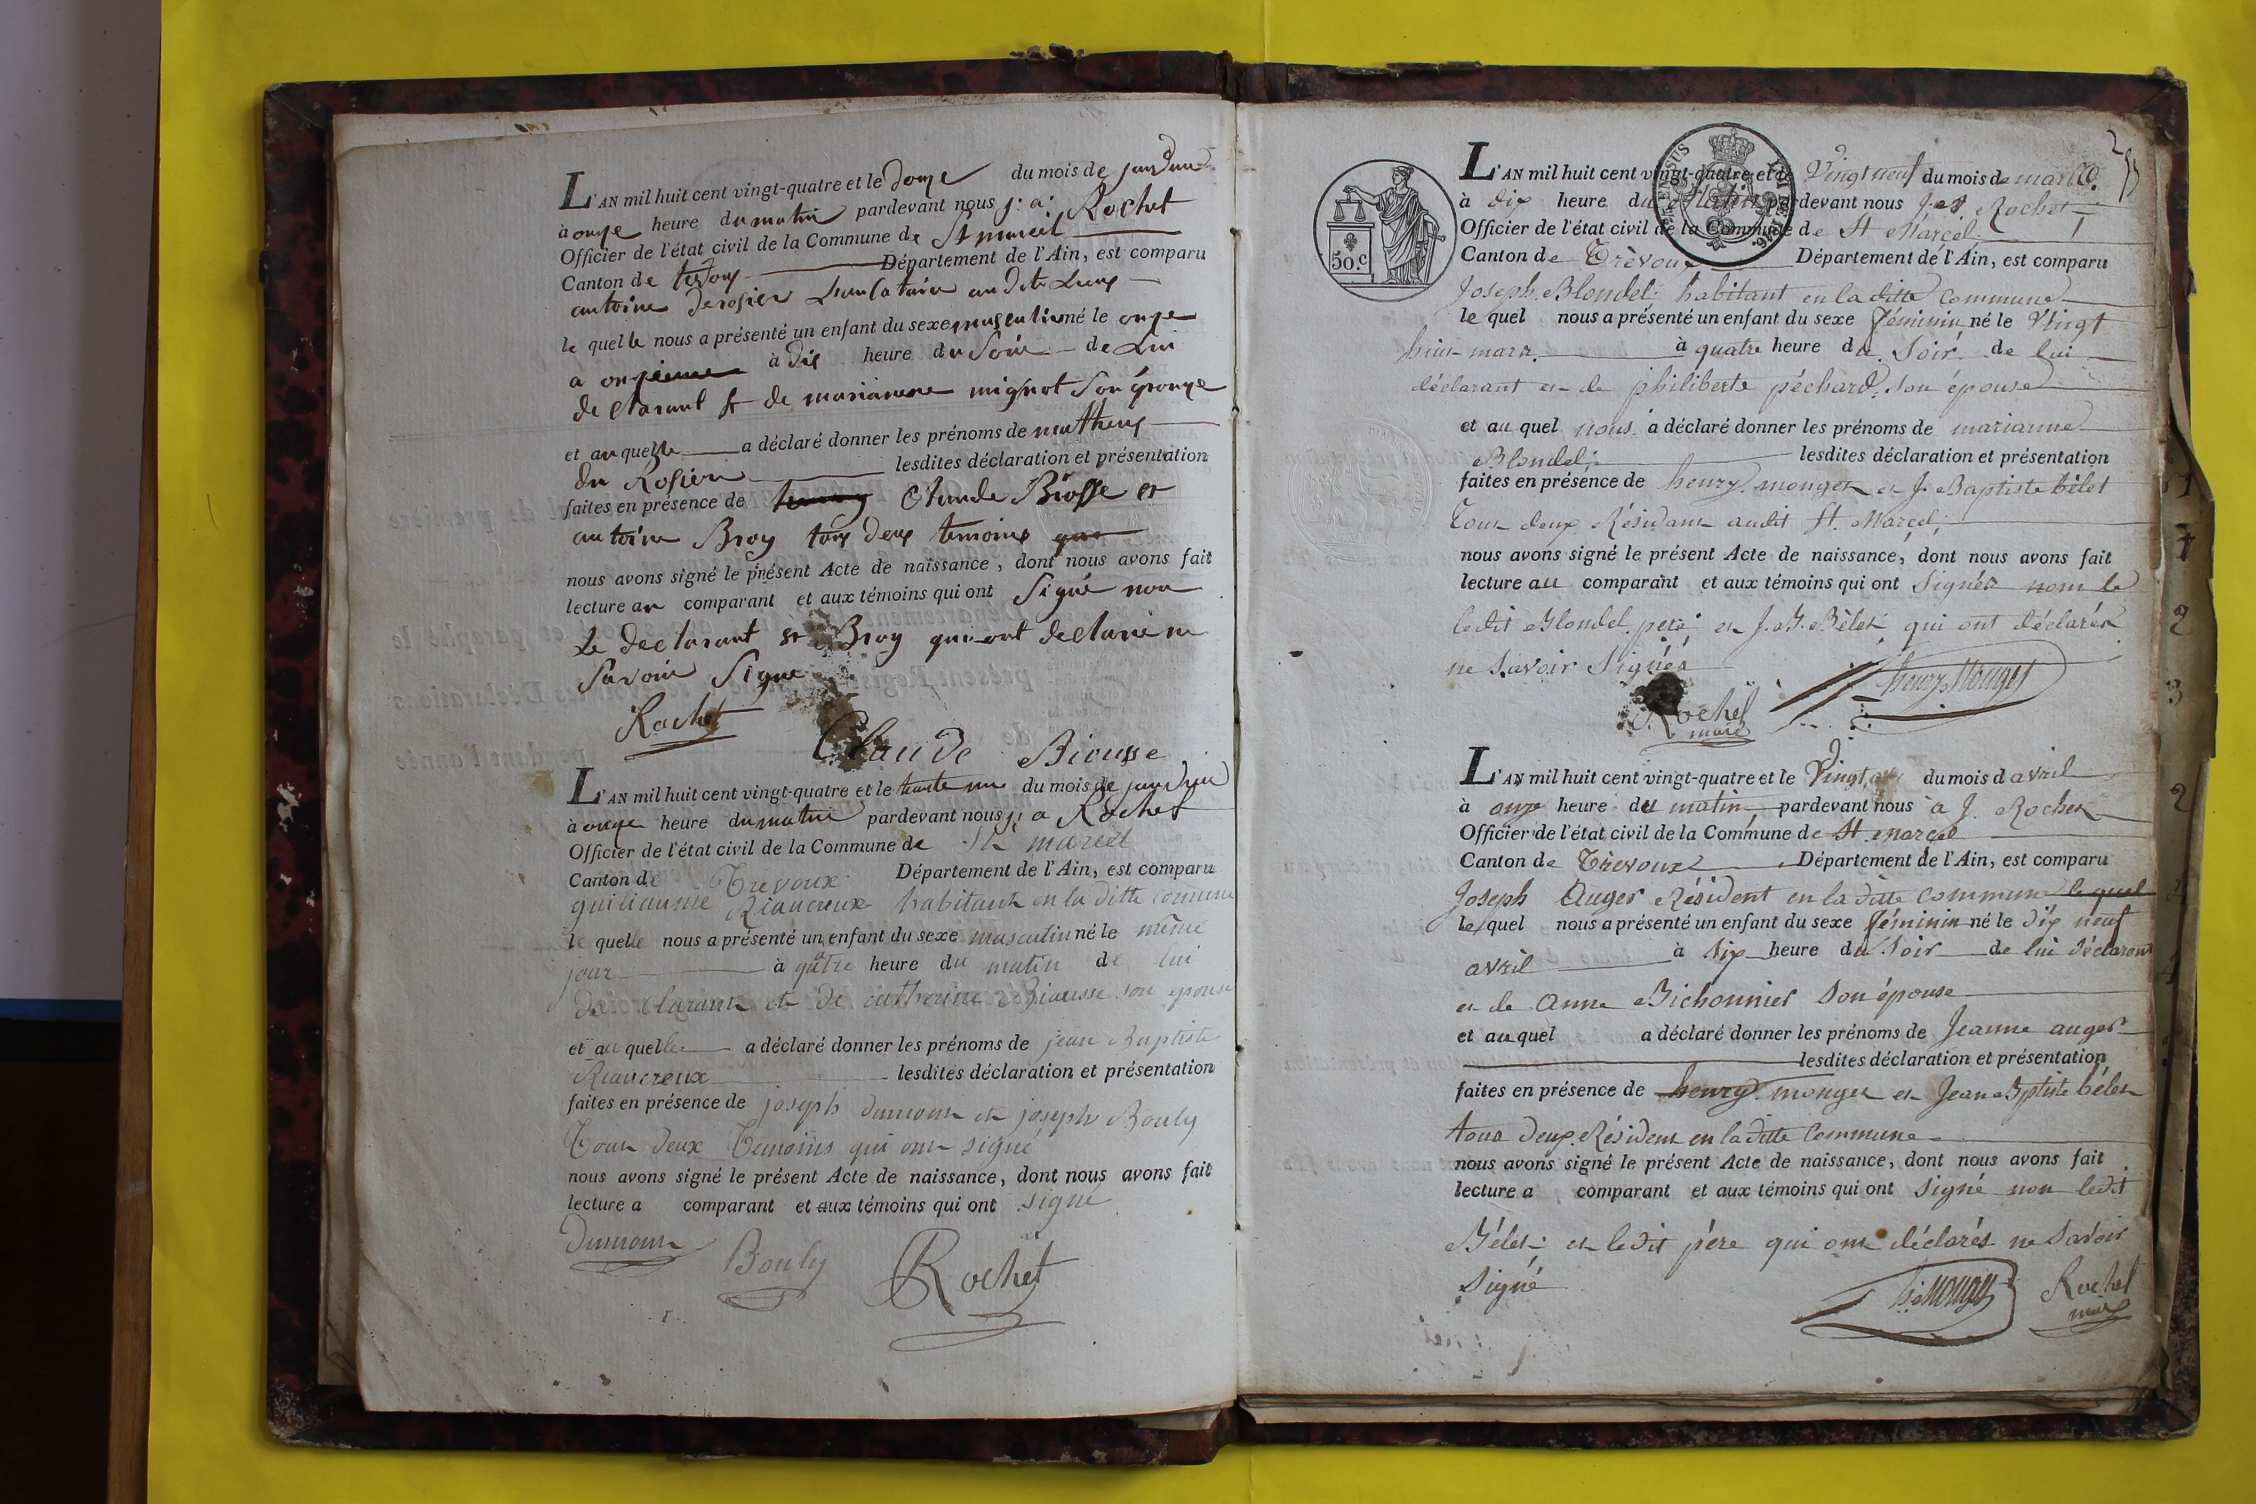 L'AN mil huit cent vingt-quatre et le douze du mois de janvier
à onze heure du matin pardevant nous j. a. Rochet
Officier de l'état civil de la Commune de St marcel
Canton de Département de l'Ain, est comparu
antoine derosier audit Lieux
le quelle nous a présenté un enfant du sexe masculin né le onze
à dix heure du Soir de Lui
declarant et de marianne mignot Son épouze
et au quelle a déclaré donner les prénoms de mathieu
du Rosier lesdites déclaration et présentation
faites en présence de Claude Biosse et
antoine Broy tous deux temoins
nous avons signé le présent Acte de naissance, dont nous avons fait
lecture au comparant et aux témoins qui ont Signé non
Le declarant et Broy qui ont declaré ne
Savoir Signe
Rochet
Claude Biousse
L'AN mil huit cent vingt-quatre et le trente un du mois de janvier
à onze heure du matin pardevant nous j. a Rochet
Officier de l'état civil de la Commune de St marcel
Canton de Trevoux Département de l'Ain, est comparu
guillaume Riancreux habitant en la ditte comune
le quelle nous a présenté un enfant du sexe masculin né le même
jour à quatre heure du matin de lui
declarant et de catherine Biousse son epouse
et au quelle a déclaré donner les prénoms de jean Baptiste
Riancreux lesdites déclaration et présentation
faites en présence de joseph dumont et joseph Bouly
Tout deux Temoins qui ont signé
nous avons signé le présent Acte de naissance, dont nous avons fait
lecture a comparant et aux témoins qui ont signé
Dumont Bouly Rochet
L'AN mil huit cent vingt-quatre et le Vingt neuf du mois de mars
à dix heure du Matin pardevant nous Rochet
Officier de l'état civil de la Commune de St Marcel
50.c
Canton de Trèvoux Département de l'Ain, est comparu
Joseph Blondel habitant en la ditte commune
le quel nous a présenté un enfant du sexe féminin né le Vingt
huit mars à quatre heure du Soir de lui
déclarant et de philiberte péchard son épouse
et au quel nous a déclaré donner les prénoms de marianne
Blondel lesdites déclaration et présentation
faites en présence de henry monget et J. Baptiste bélet
Tout deux Résidant audit St. Marcel,
nous avons signé le présent Acte de naissance, dont nous avons fait
lecture au comparant et aux témoins qui ont Signés nom le
ledit Blondel pere et J. B. Bélet qui ont déclarés
ne Savoir Signés
henry Monget
Rochet
maire
L'AN mil huit cent vingt-quatre et le Vingt du mois d avril
à onze heure du matin pardevant nous a J. Rochet
Officier de l'état civil de la Commune de St marcel
Canton de Trèvoux Département de l'Ain, est comparu
Joseph Auger Résident en la ditte Commune le quel
le quel nous a présenté un enfant du sexe féminin né le dix neuf
avril à Six heure du Soir de lui déclarant
et de Anne Bichonnier Son épouse
et au quel a déclaré donner les prénoms de Jeanne auger
lesdites déclaration et présentation
faites en présence de henry monget et Jean Bptiste bélet
tous deux Résident en la ditte Commune
nous avons signé le présent Acte de naissance, dont nous avons fait
lecture a comparant et aux témoins qui ont Signé non ledit
Bélet et ledit père qui ont déclarés ne Savoir
Signé
h. Monget Rochet
maire